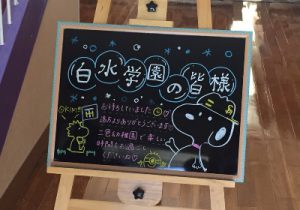 白水学園の皆様
お待ちしていました
遠方よりありがとうございます
二宮幼稚園で楽しい
時間をお過ごし
くださいね♡